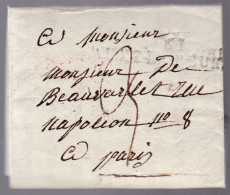 A Monsieur
Monsieur De
Beauvarlet Rue
Napoleon no 8
A paris